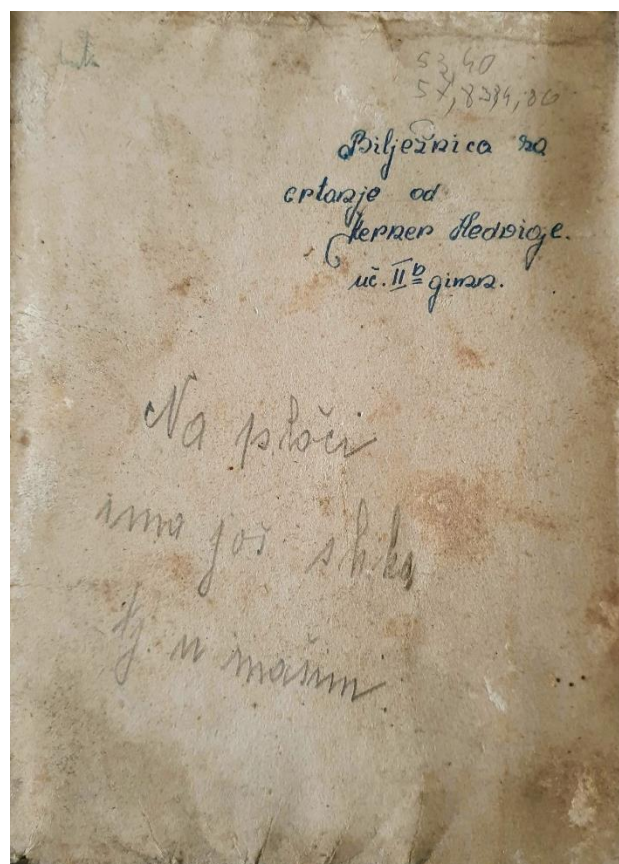 53,40
Bilježnica za
crtanje od
Herner Hedvige.
uč. II b gimn.
Na ploči
ima još slika
tj. u mašini.